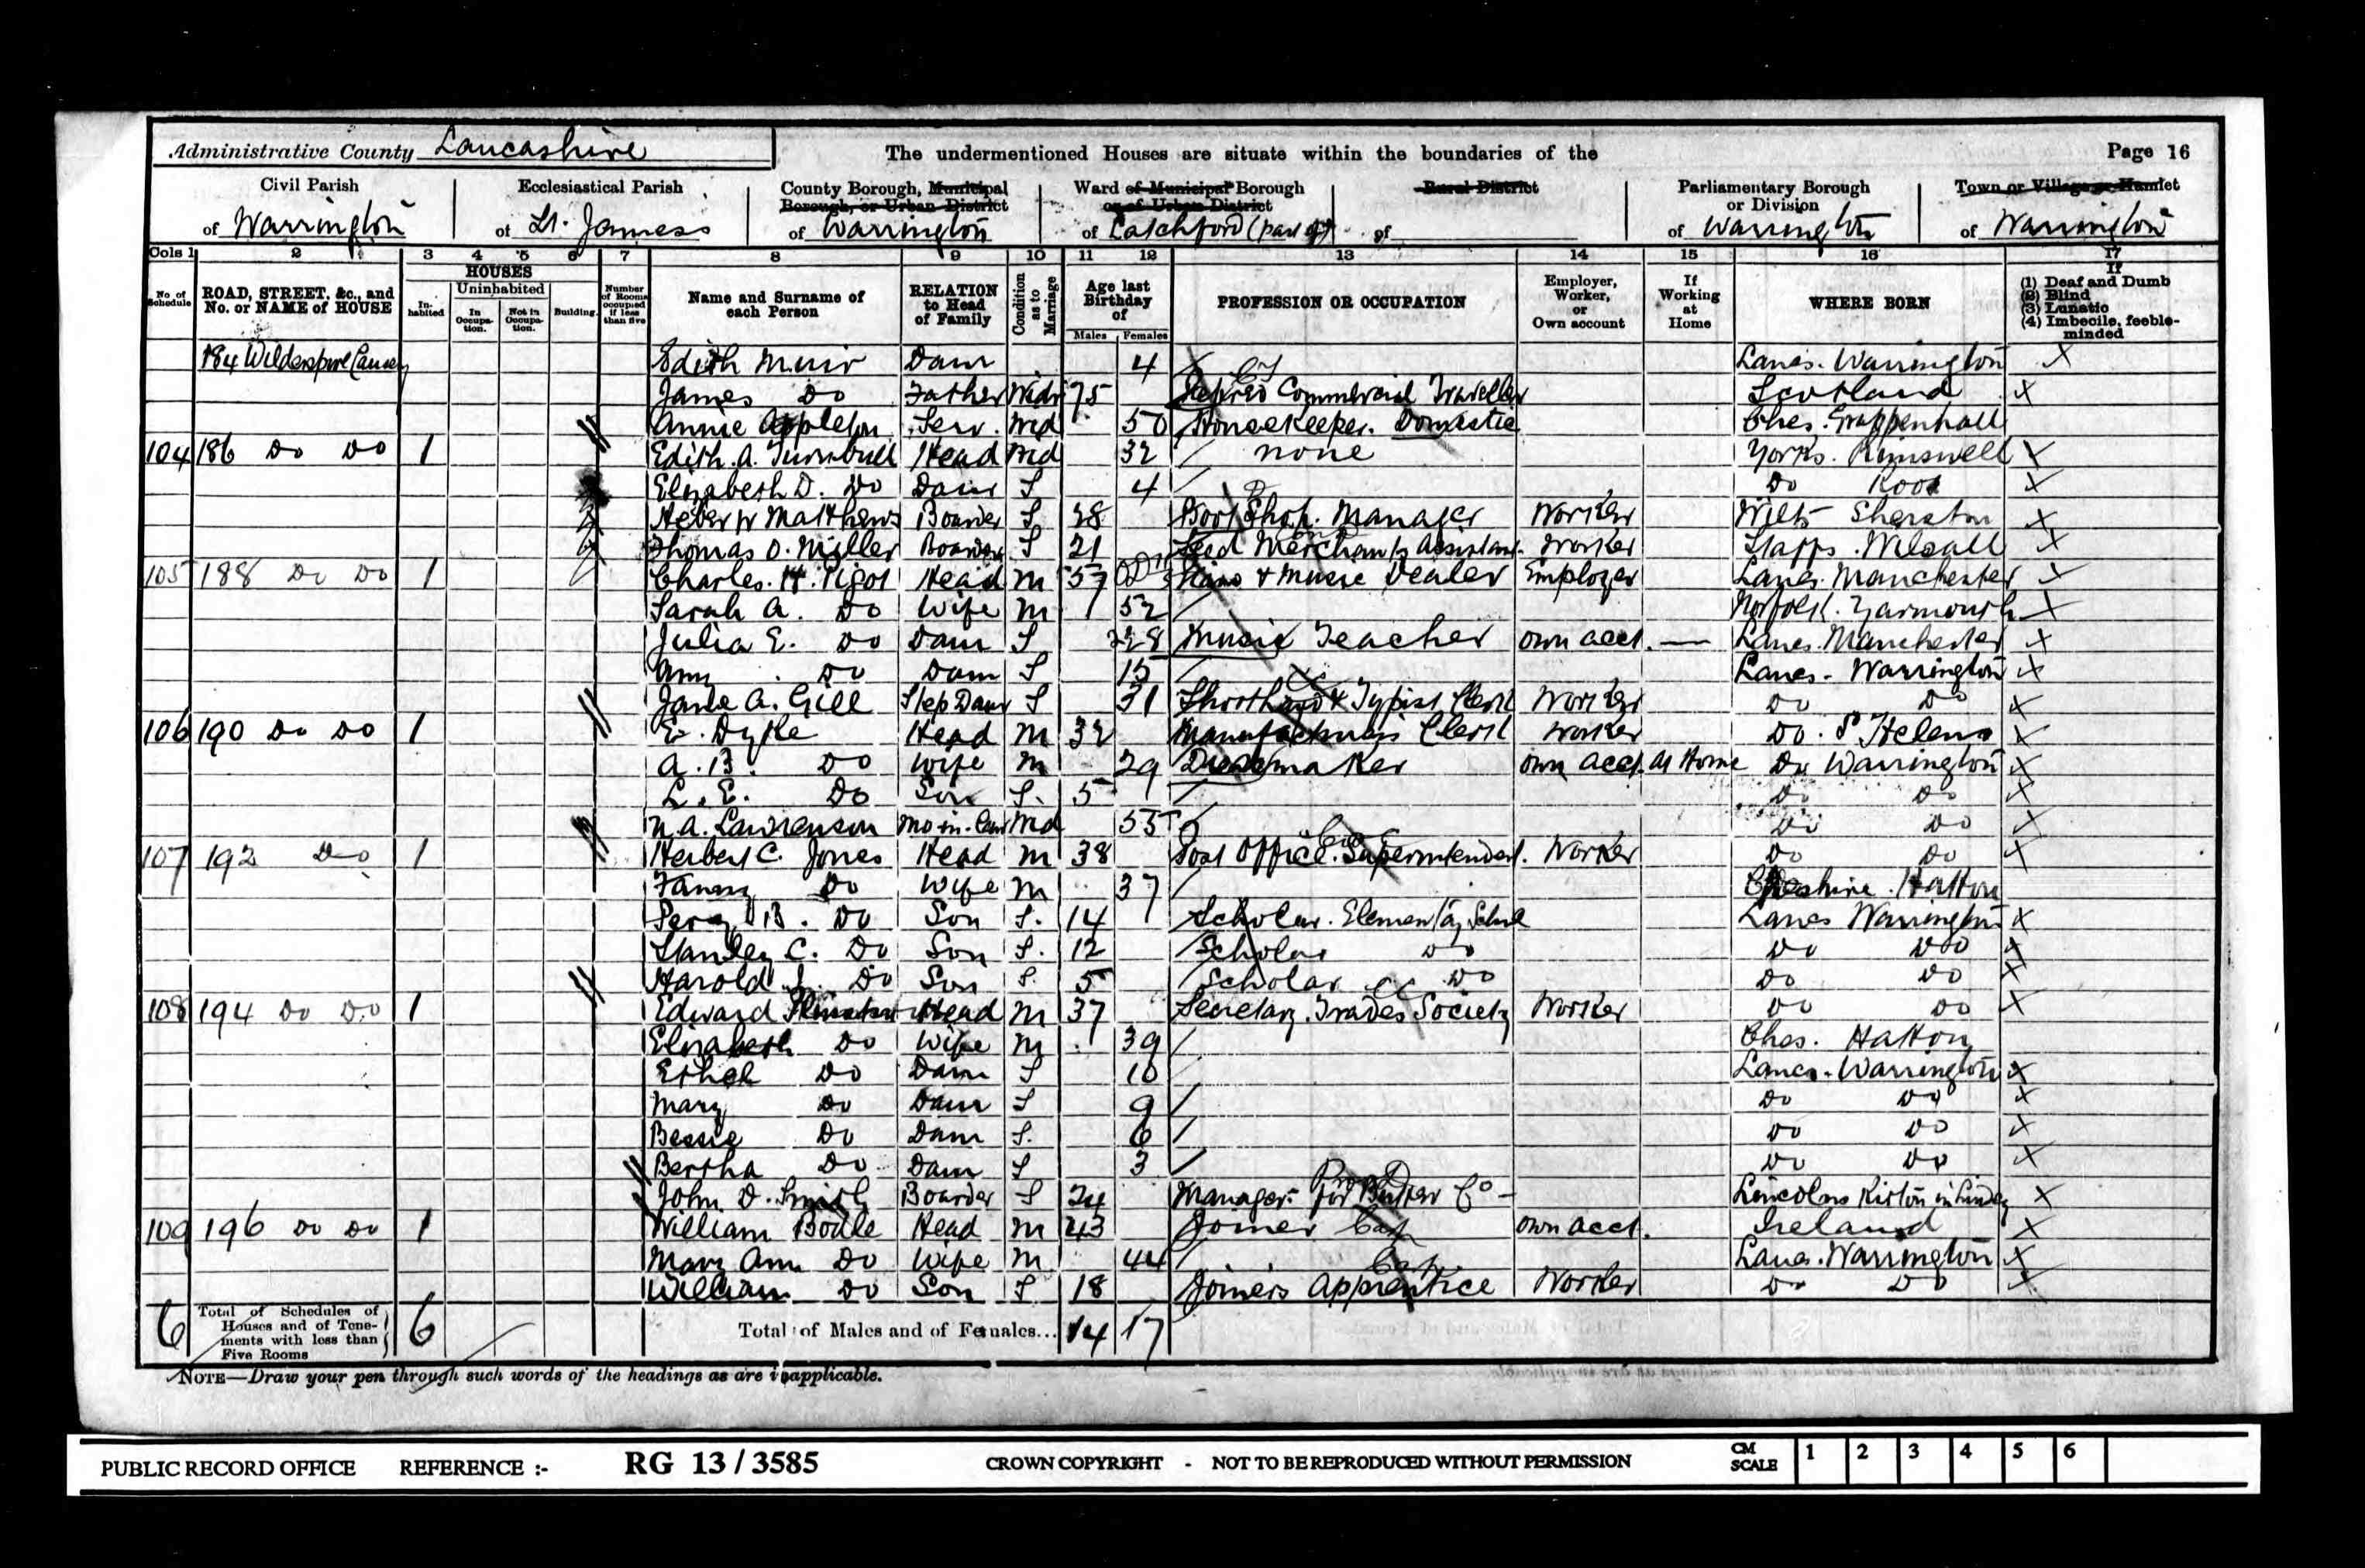 Administrative County Lancashire
The undermentioned Houses are situate within the boundaries of the
Page 16
Civil Parish
of Warrington
Ecclesiastical Parish
of St. James's
County Borough, Municipal
Borough, or Urban District
of Warrington
Ward of Municipal Borough
or of Urban District
of Latchford (part of)
Rural District
of
Parliamentary Borough
or Division
of Warrington
Town or Village or Hamlet
of Warrington
Cols 1 2 3 4 5 6 7 8 9 10 11 12 13 14 15 16 17
No. of Schedule
ROAD, STREET, &c., and No. or NAME of HOUSE
HOUSES
In-habited
Uninhabited
In Occupa-tion.
Not in Occupa-tion.
Building.
Number of Rooms occupied if less than five
Name and Surname of each Person
RELATION to Head of Family
Condition as to Marriage
Age last Birthday of
Males Females
PROFESSION OR OCCUPATION
Employer, Worker, or Own account
If Working at Home
WHERE BORN
If
(1) Deaf and Dumb
(2) Blind
(3) Lunatic
(4) Imbecile, feeble-minded
184 Edith Muir Daur 4 Lancs. Warrington
James Do Father Widr 75 Retired Commercial Traveller Scotland
Annie Appleton Serv. Wd 50 Housekeeper. Domestic Ches. Grappenhall
104 186 Do Do 1 Edith. A. Turnbull Head Wd 32 none Yorks. Rimswell
Elizabeth D. Do Daur S 4 Do Roos
Heber W Matthews Boarder S 28 Boot Shop. Manager Worker Wilts Sherston
Thomas O. Miller Boarder S 21 Seed Merchants Assistant. Worker Staffs.
105 188 Do Do 1 Charles. H. Pigot Head M 57 Piano & Music Dealer Employer Lancs. Manchester
Sarah A. Do Wife M 52 Norfolk. Yarmouth
Julia E. Do Daur S 28 Music Teacher own acct. — Lancs. Manchester
Amy Do Daur S 15 Lancs. Warrington
Jane A. Gill Step Daur S 31 Shorthand & Typist Clerk Worker Do Do
106 190 Do Do 1 E. Dyke Head M 32 Clerk Worker Do. St Helens
A. B. Do Wife M 29 Dressmaker own acct. At Home Do Warrington
L. E. Do Son S. 5 Do Do
N. A. Lawrenson Mo-in-law Wd 55 Do Do
107 192 Do 1 Herbert C. Jones Head M 38 Post Office. Superintendent. Worker Do Do
Fanny Do Wife M 37 Cheshire. Hatton
Percy B. Do Son S. 14 Scholar. Lancs Warrington
Stanley C. Do Son S. 12 Scholar Do Do Do
Harold Do Son S. 5 Scholar Do Do Do
108 194 Do Do 1 Edward Head M 37 Secretary. Trades Society Worker Do Do
Elizabeth Do Wife M 39 Ches. Hatton
Ethel Do Daur S 10 Lancs. Warrington
Mary Do Daur S 9 Do Do
Bessie Do Daur S. 6 Do Do
Bertha Do Daur S 3 Do Do
John D. Smith Boarder S 24 Manager for Butter Co Lincolns Kirton in Lindsey
109 196 Do Do 1 William Boale Head M 43 Joiner own acct. Ireland
Mary Ann Do Wife M 44 Lancs. Warrington
William Do Son S 18 Joiners Apprentice Worker Do Do
6 Total of Schedules of Houses and of Tene-ments with less than Five Rooms 6
Total of Males and of Females... 14 17
NOTE—Draw your pen through such words of the headings as are inapplicable.
PUBLIC RECORD OFFICE REFERENCE :- RG 13 / 3585 CROWN COPYRIGHT - NOT TO BE REPRODUCED WITHOUT PERMISSION CM SCALE 1 2 3 4 5 6